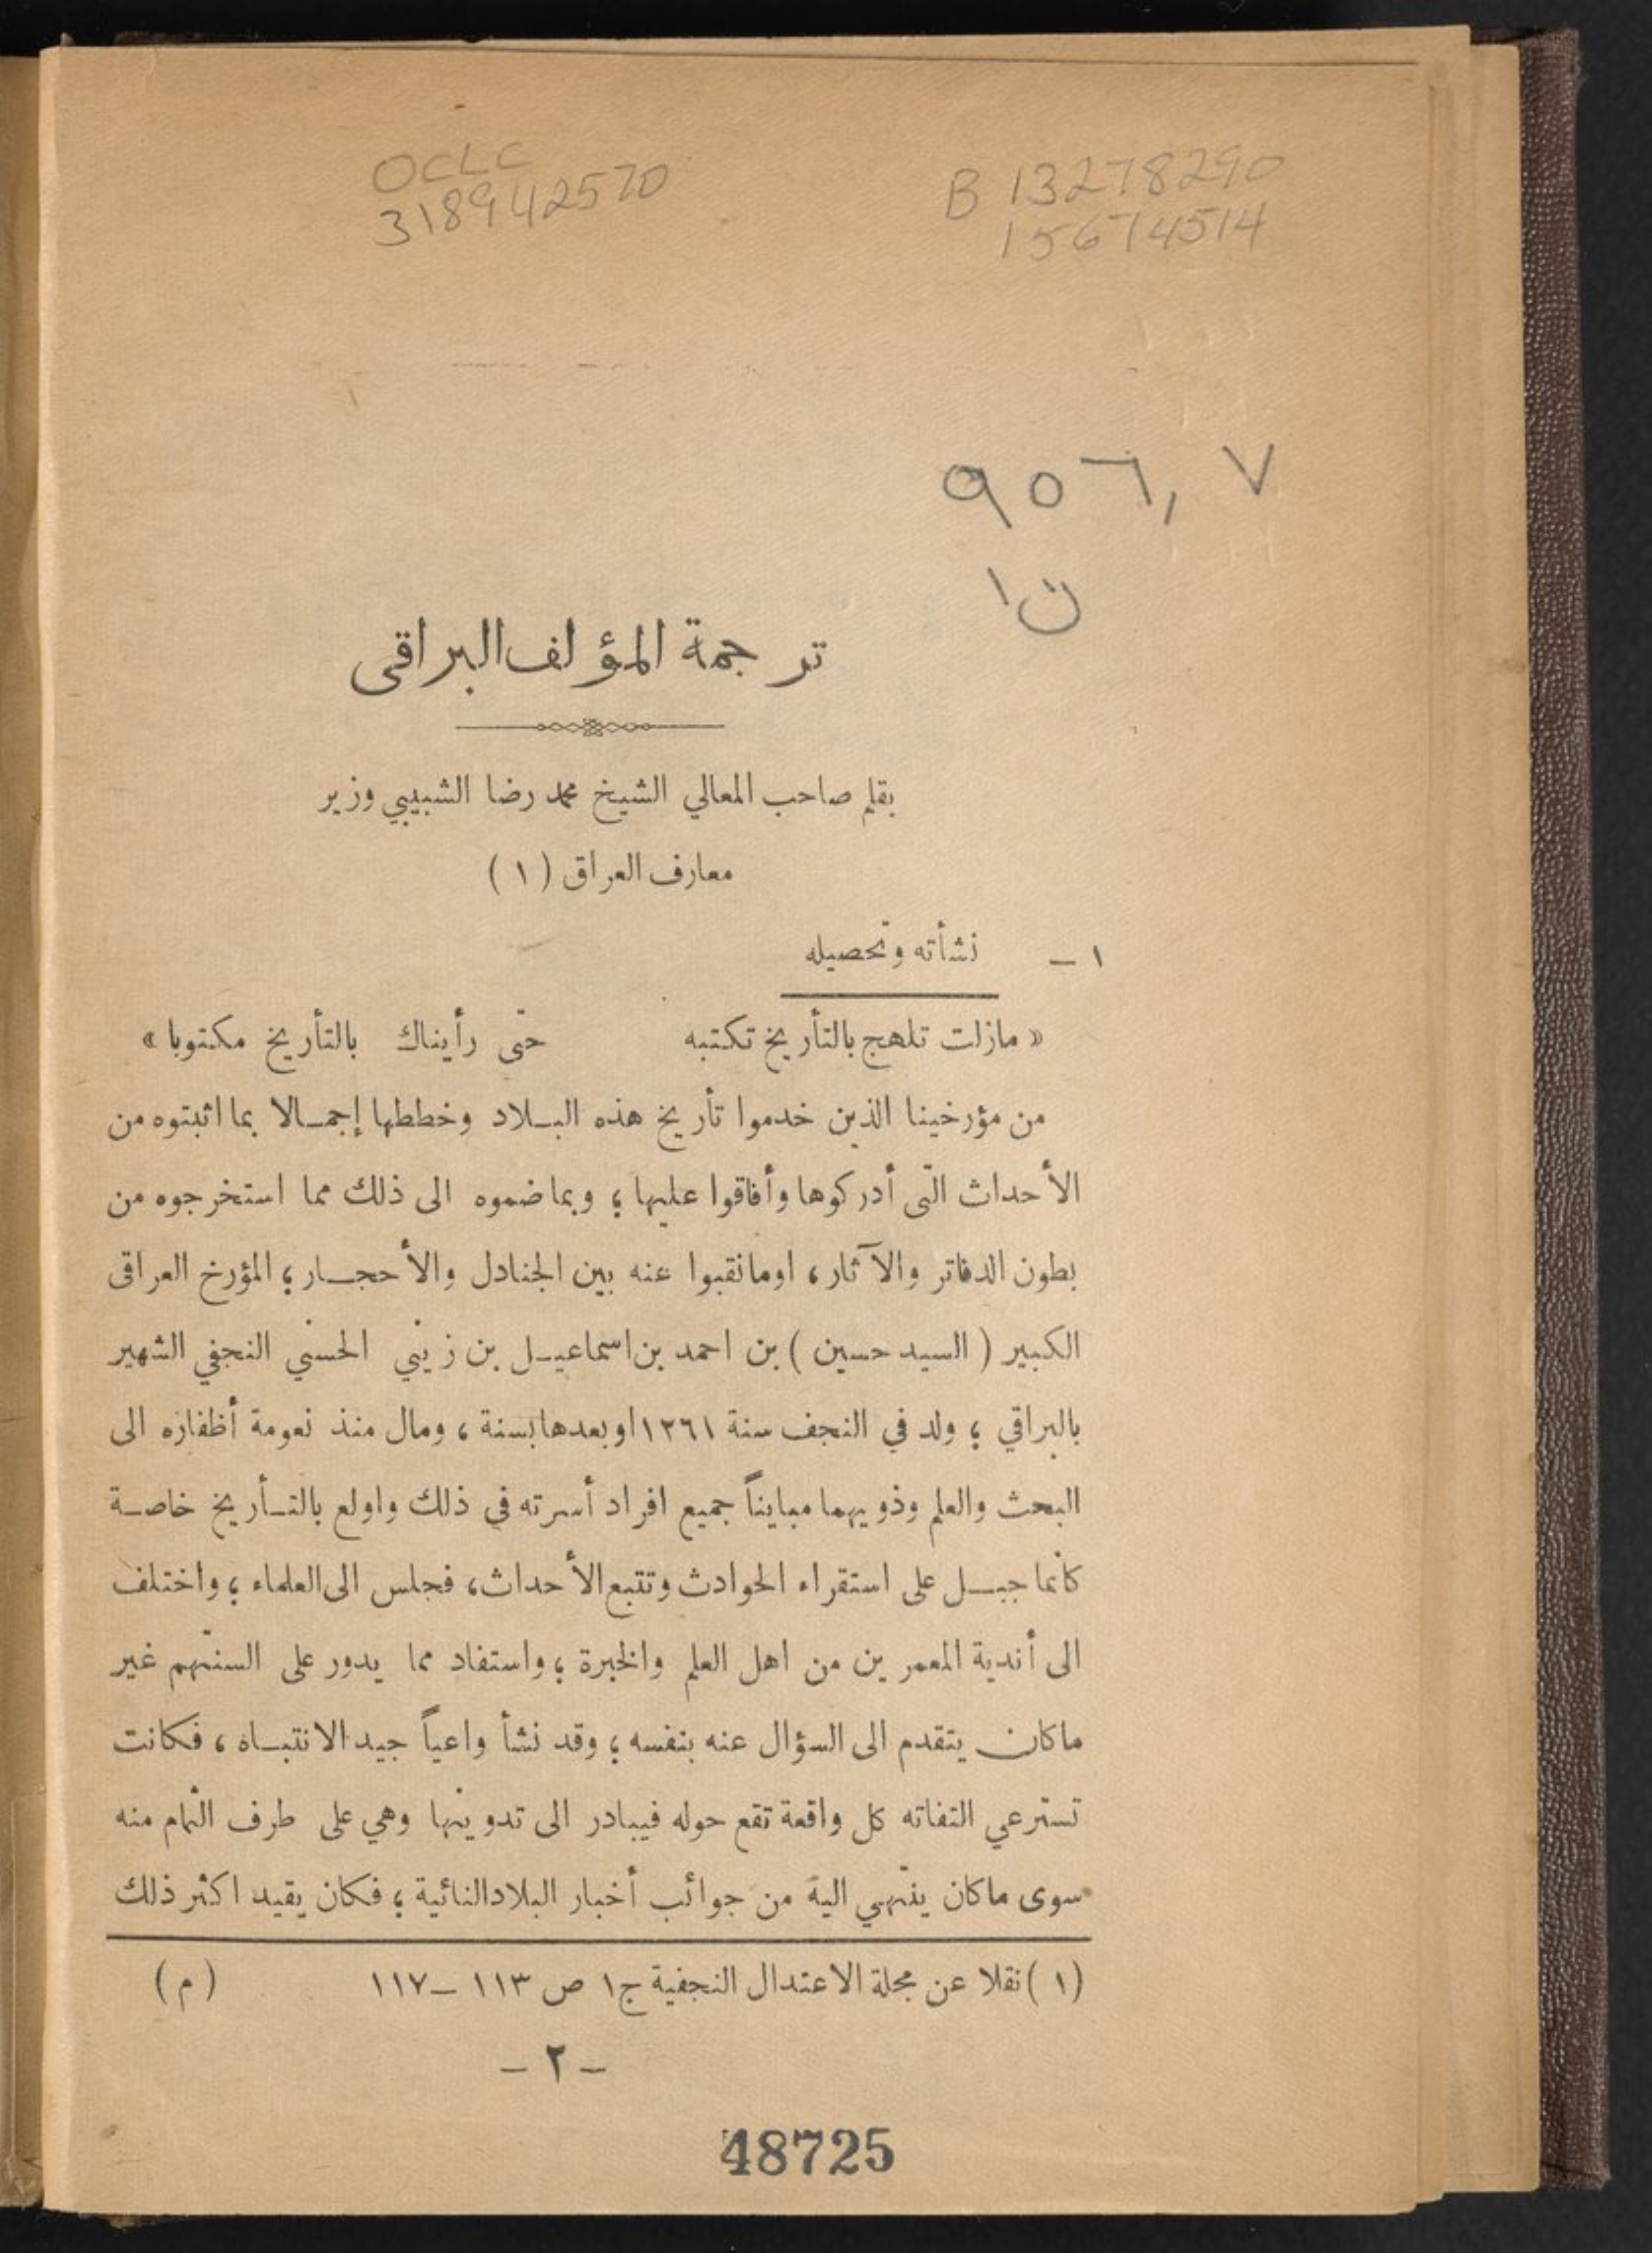 OCLC
318942570
B 13278290
15674514
٩٥٦,٧
ن ١
ترجمة المؤلف البراقي
بقلم صاحب المعالي الشيخ محمد رضا الشبيبي وزير
معارف العراق ( ١ )
١ – نشأته وتحصيله
« مازلت تلهج بالتأريخ تكتبه حتّى رأيناك بالتأريخ مكتوبا »
من مؤرخينا الذين خدموا تأريخ هذه البلاد وخططها إجمالا بما اثبتوه من
الأحداث الّتى أدركوها وأفاقوا عليها ؛ وبما ضموه الى ذلك مما استخرجوه من
بطون الدفاتر والآثار ، اومانقبوا عنه بين الجنادل والأحجار ؛ المؤرخ العراقى
الكبير ( السيد حسين ) بن احمد بن اسماعيل بن زيني الحسني النجفي الشهير
بالبراقي ؛ ولد في النجف سنة ١٢٦١ اوبعدها بسنة ، ومال منذ نعومة أظفاره الى
البحث والعلم وذويهما مبايناً جميع افراد أسرته في ذلك واولع بالتأريخ خاصة
كأنما جبل على استقراء الحوادث وتتبع الأحداث ، فجلس الى العلماء ؛ واختلف
الى أندية المعمرين من اهل العلم والخبرة ؛ واستفاد مما يدور على السنتهم غير
ماكان يتقدم الى السؤال عنه بنفسه ؛ وقد نشأ واعياً جيد الانتباه ، فكانت
تسترعي التفاته كل واقعة تقع حوله فيبادر الى تدوينها وهي على طرف الثمام منه
سوى ماكان ينتهي اليه من جوائب أخبار البلاد النائية ؛ فكان يقيد اكثر ذلك
( ١ ) نقلا عن مجلة الاعتدال النجفية ج١ ص ١١٣ – ١١٧ ( م )
– ٢ –
48725